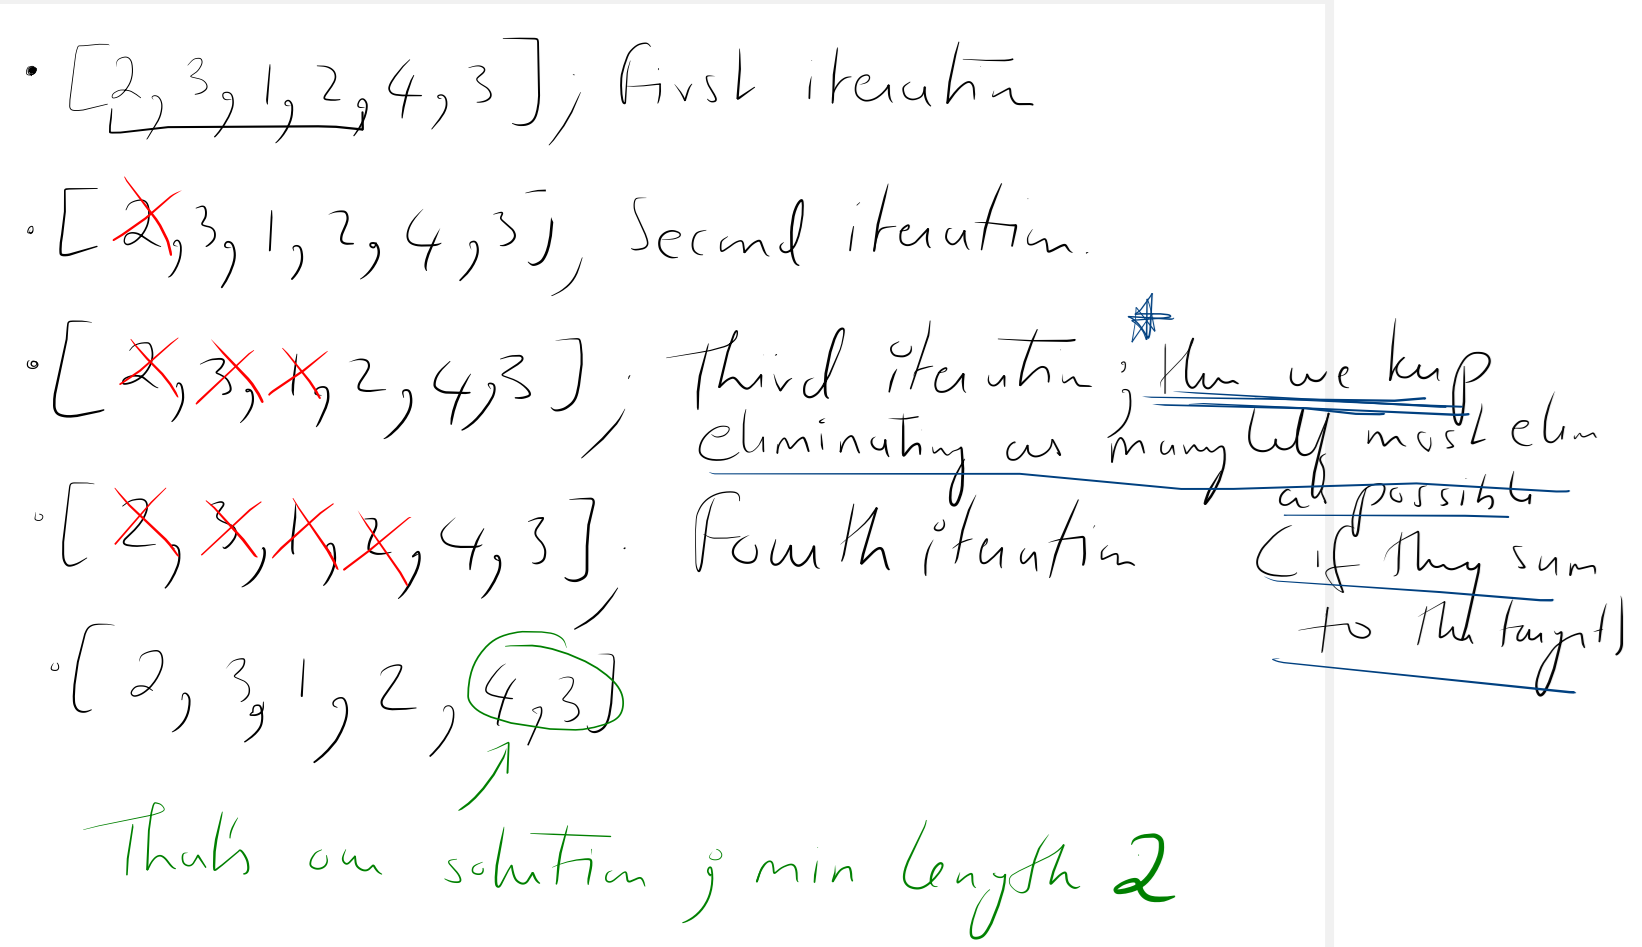 • [2, 3, 1, 2, 4, 3]; first iteration
• [2, 3, 1, 2, 4, 3], Second iteration.
• [2, 3, 1, 2, 4, 3]; Third iteration; * then we keep
eliminating as many left most elim
as possible
• [2, 3, 1, 2, 4, 3]; Fourth iteration (if they sum
to the target)
• [2, 3, 1, 2, 4, 3]
That's our solution; min length 2